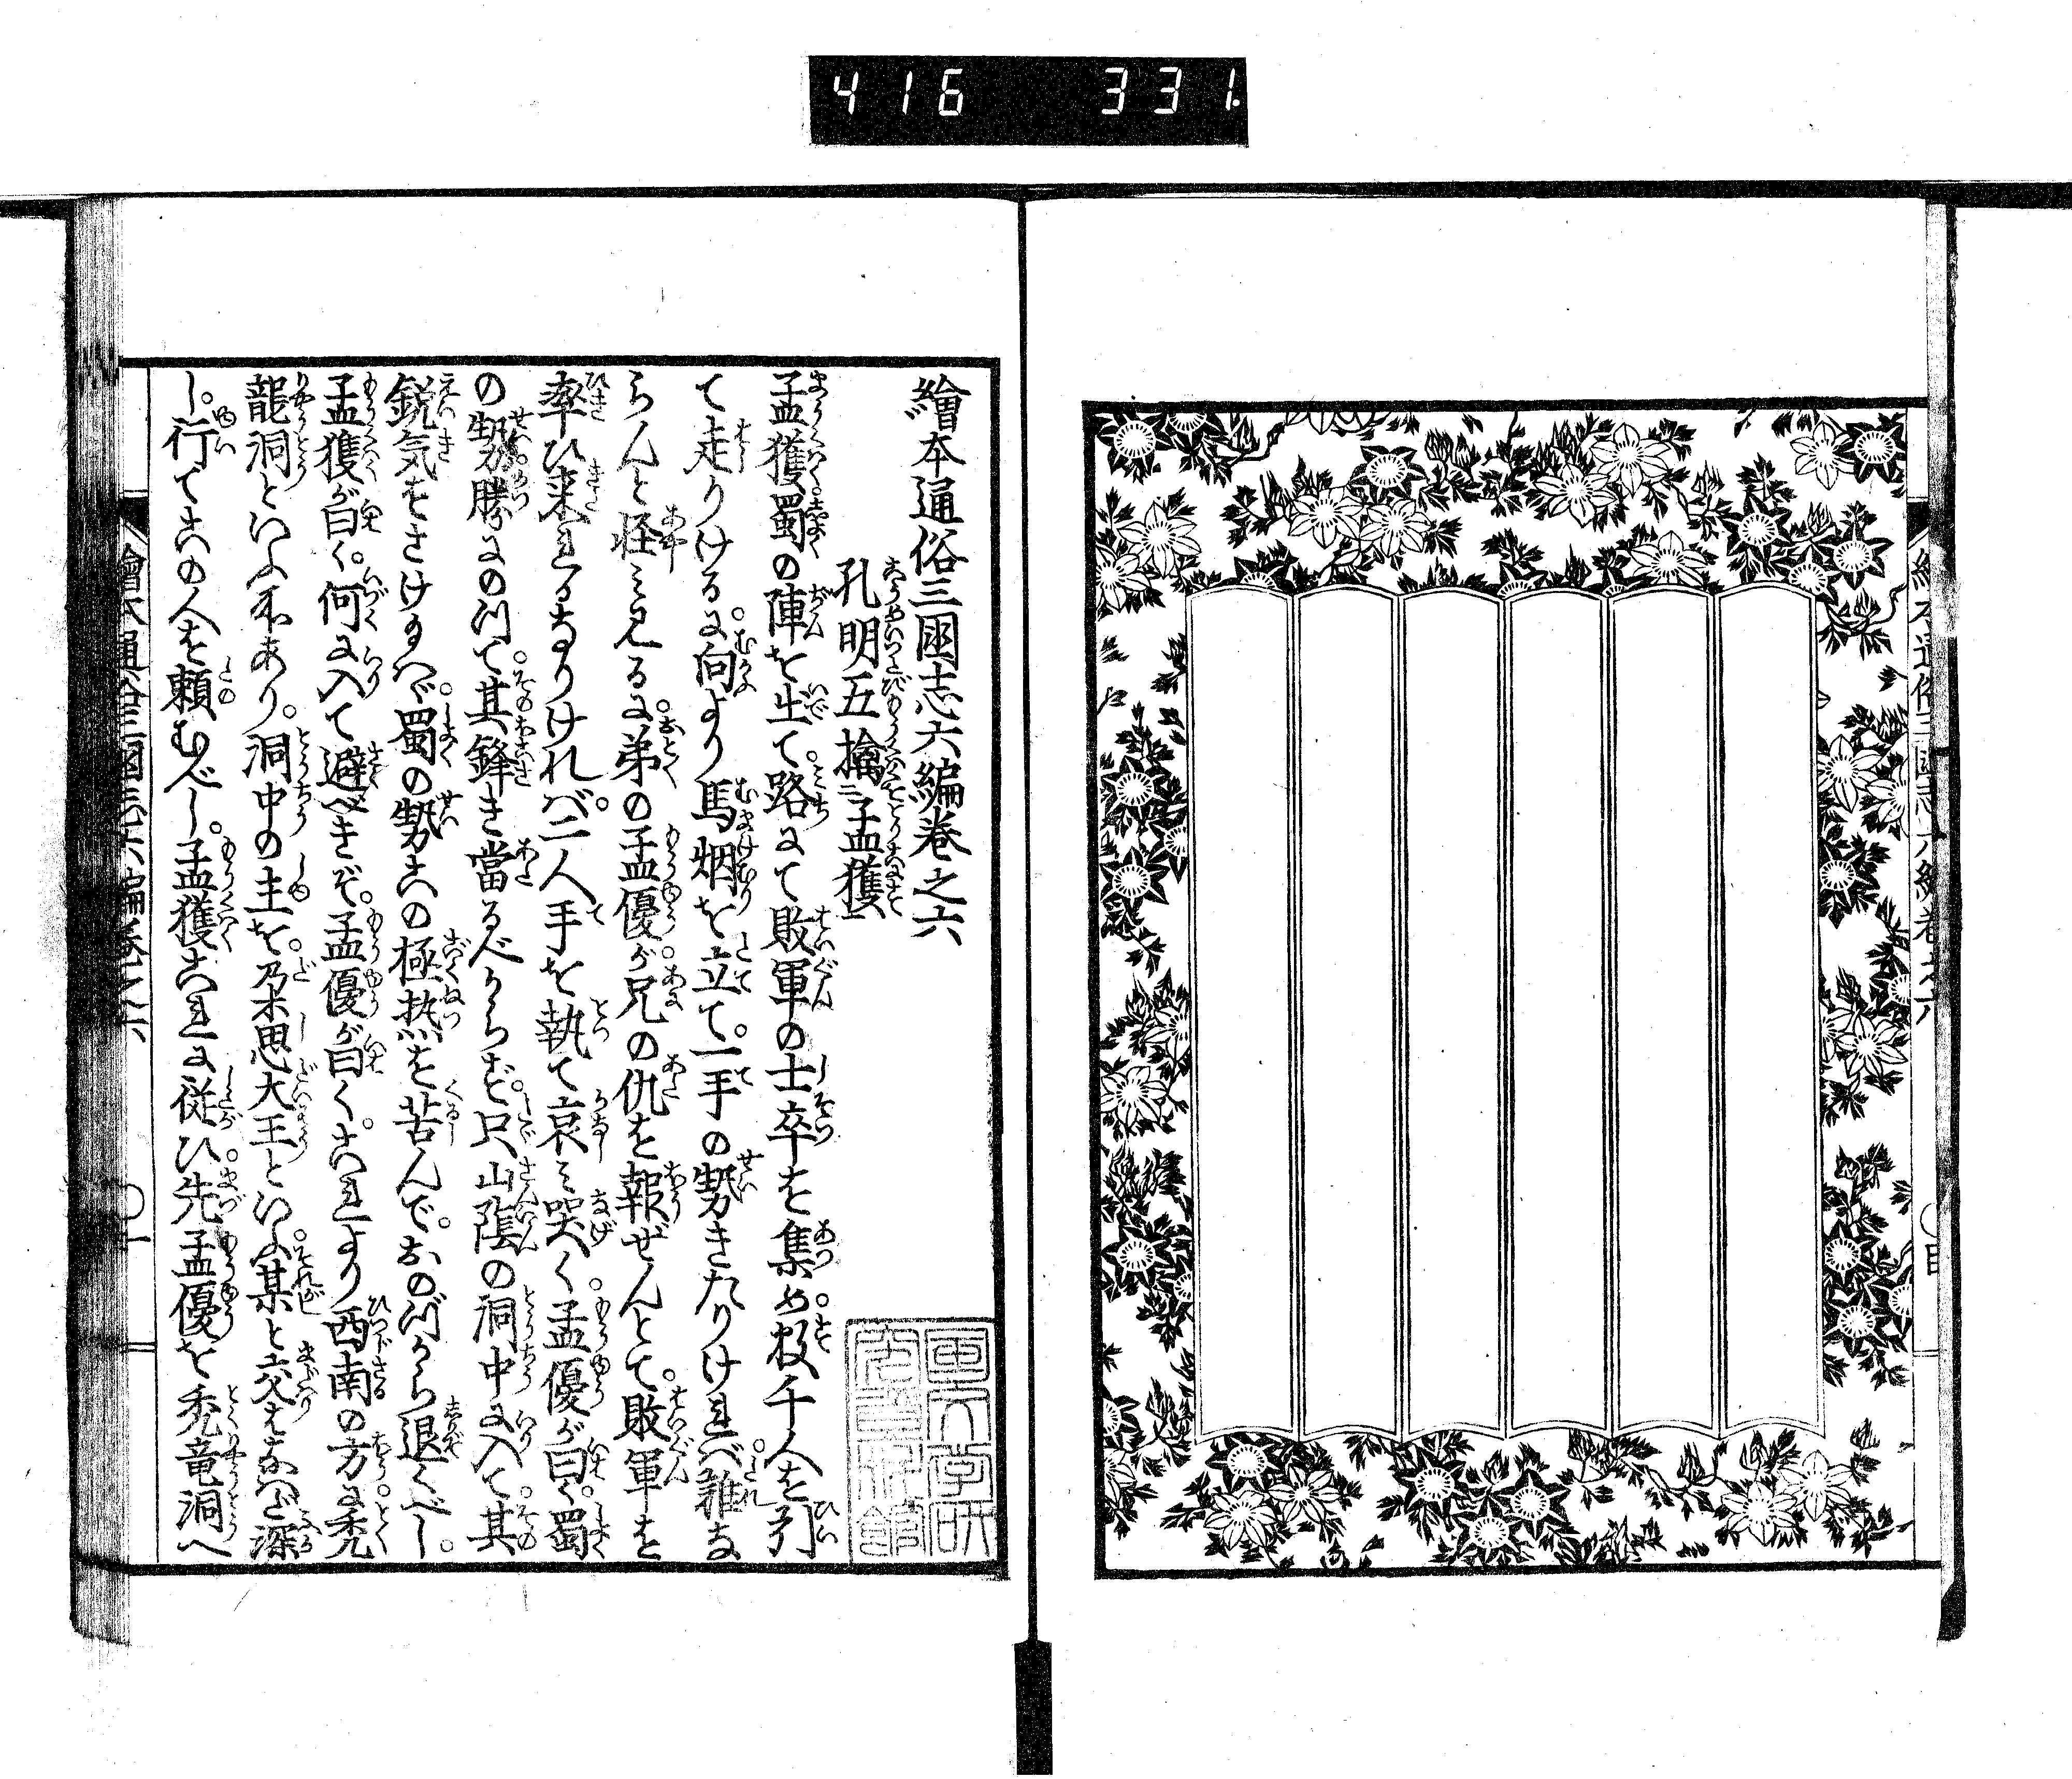 416 331
繪本通俗三國志六編巻之六
孔明五擒二孟獲一
孟獲蜀の陣を出て。路にて敗軍の士卒を集め。数千人を引
て走りけるに。向より馬烟を立て。一手の勢きたりければ。誰な
らんと怪み見るに。弟の孟優が。兄の仇を報ぜんとて。敗軍を
率ひ来れるなりければ。二人手を執て哀み哭く。孟優が曰く。蜀
の勢勝にのつて。其鋒き當るべからず。只山蔭の洞中に入て。其
鋭気をさけ玉へば。蜀の勢この極热を苦んで。おのづから退くべし。
孟獲が曰く。何に入て避べきぞ。孟優が曰く。これより西南の方に。禿
龍洞といふ所あり。洞中の主を。朶思大王といふ。某と交はなはだ深
し。行てこの人を頼むべし。孟獲これに従ひ。先孟優を禿竜洞へ
繪本通俗三國志六編巻之六 〇一